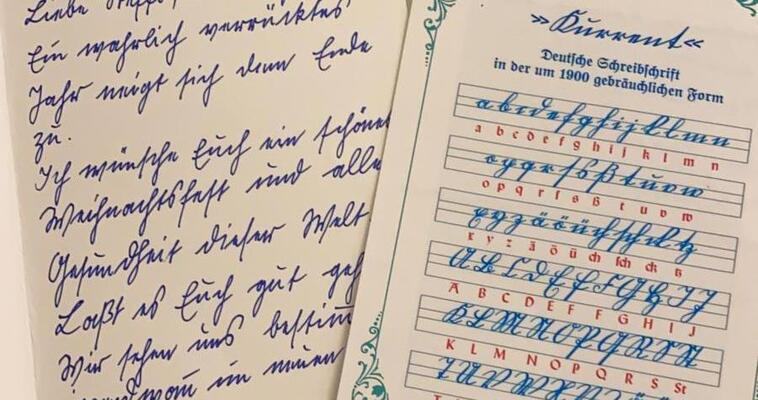 Liebe
Ein wahrlich verrücktes
Jahr neigt sich dem Ende
zu.
Ich wünsche Euch ein schönes
Weihnachtsfest und alle
Gesundheit dieser Welt
Laßt es Euch gut
Wir sehen uns
im neuen
»Kurrent«
Deutsche Schreibschrift
in der um 1900 gebräuchlichen Form
a b c d e f g h i j k l m n
a b c d e f g h i j k l m n
o p q r s ß t u v w
o p q r ſ s ß t u v w
x y z ä ö ü ch sch ck tz
x y z ä ö ü ch ſch ck tz
A B C D E F G H I J
A B C D E F G H I J
K L M N O P Q R S St
K L M N O P Q R S St
T U V W X